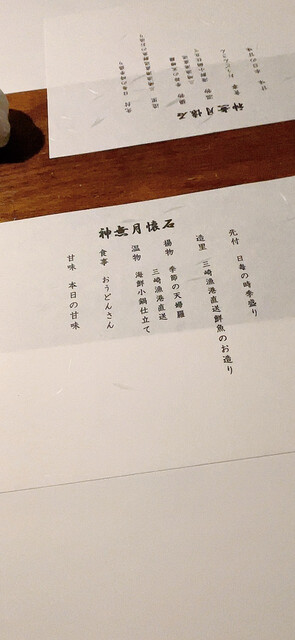 神無月懐石
先付 日毎の時季盛り
造里 三崎漁港直送鮮魚のお造り
揚物 季節の天婦羅
温物 三崎漁港直送
海鮮小鍋仕立て
食事 おうどんさん
甘味 本日の甘味
神無月懐石